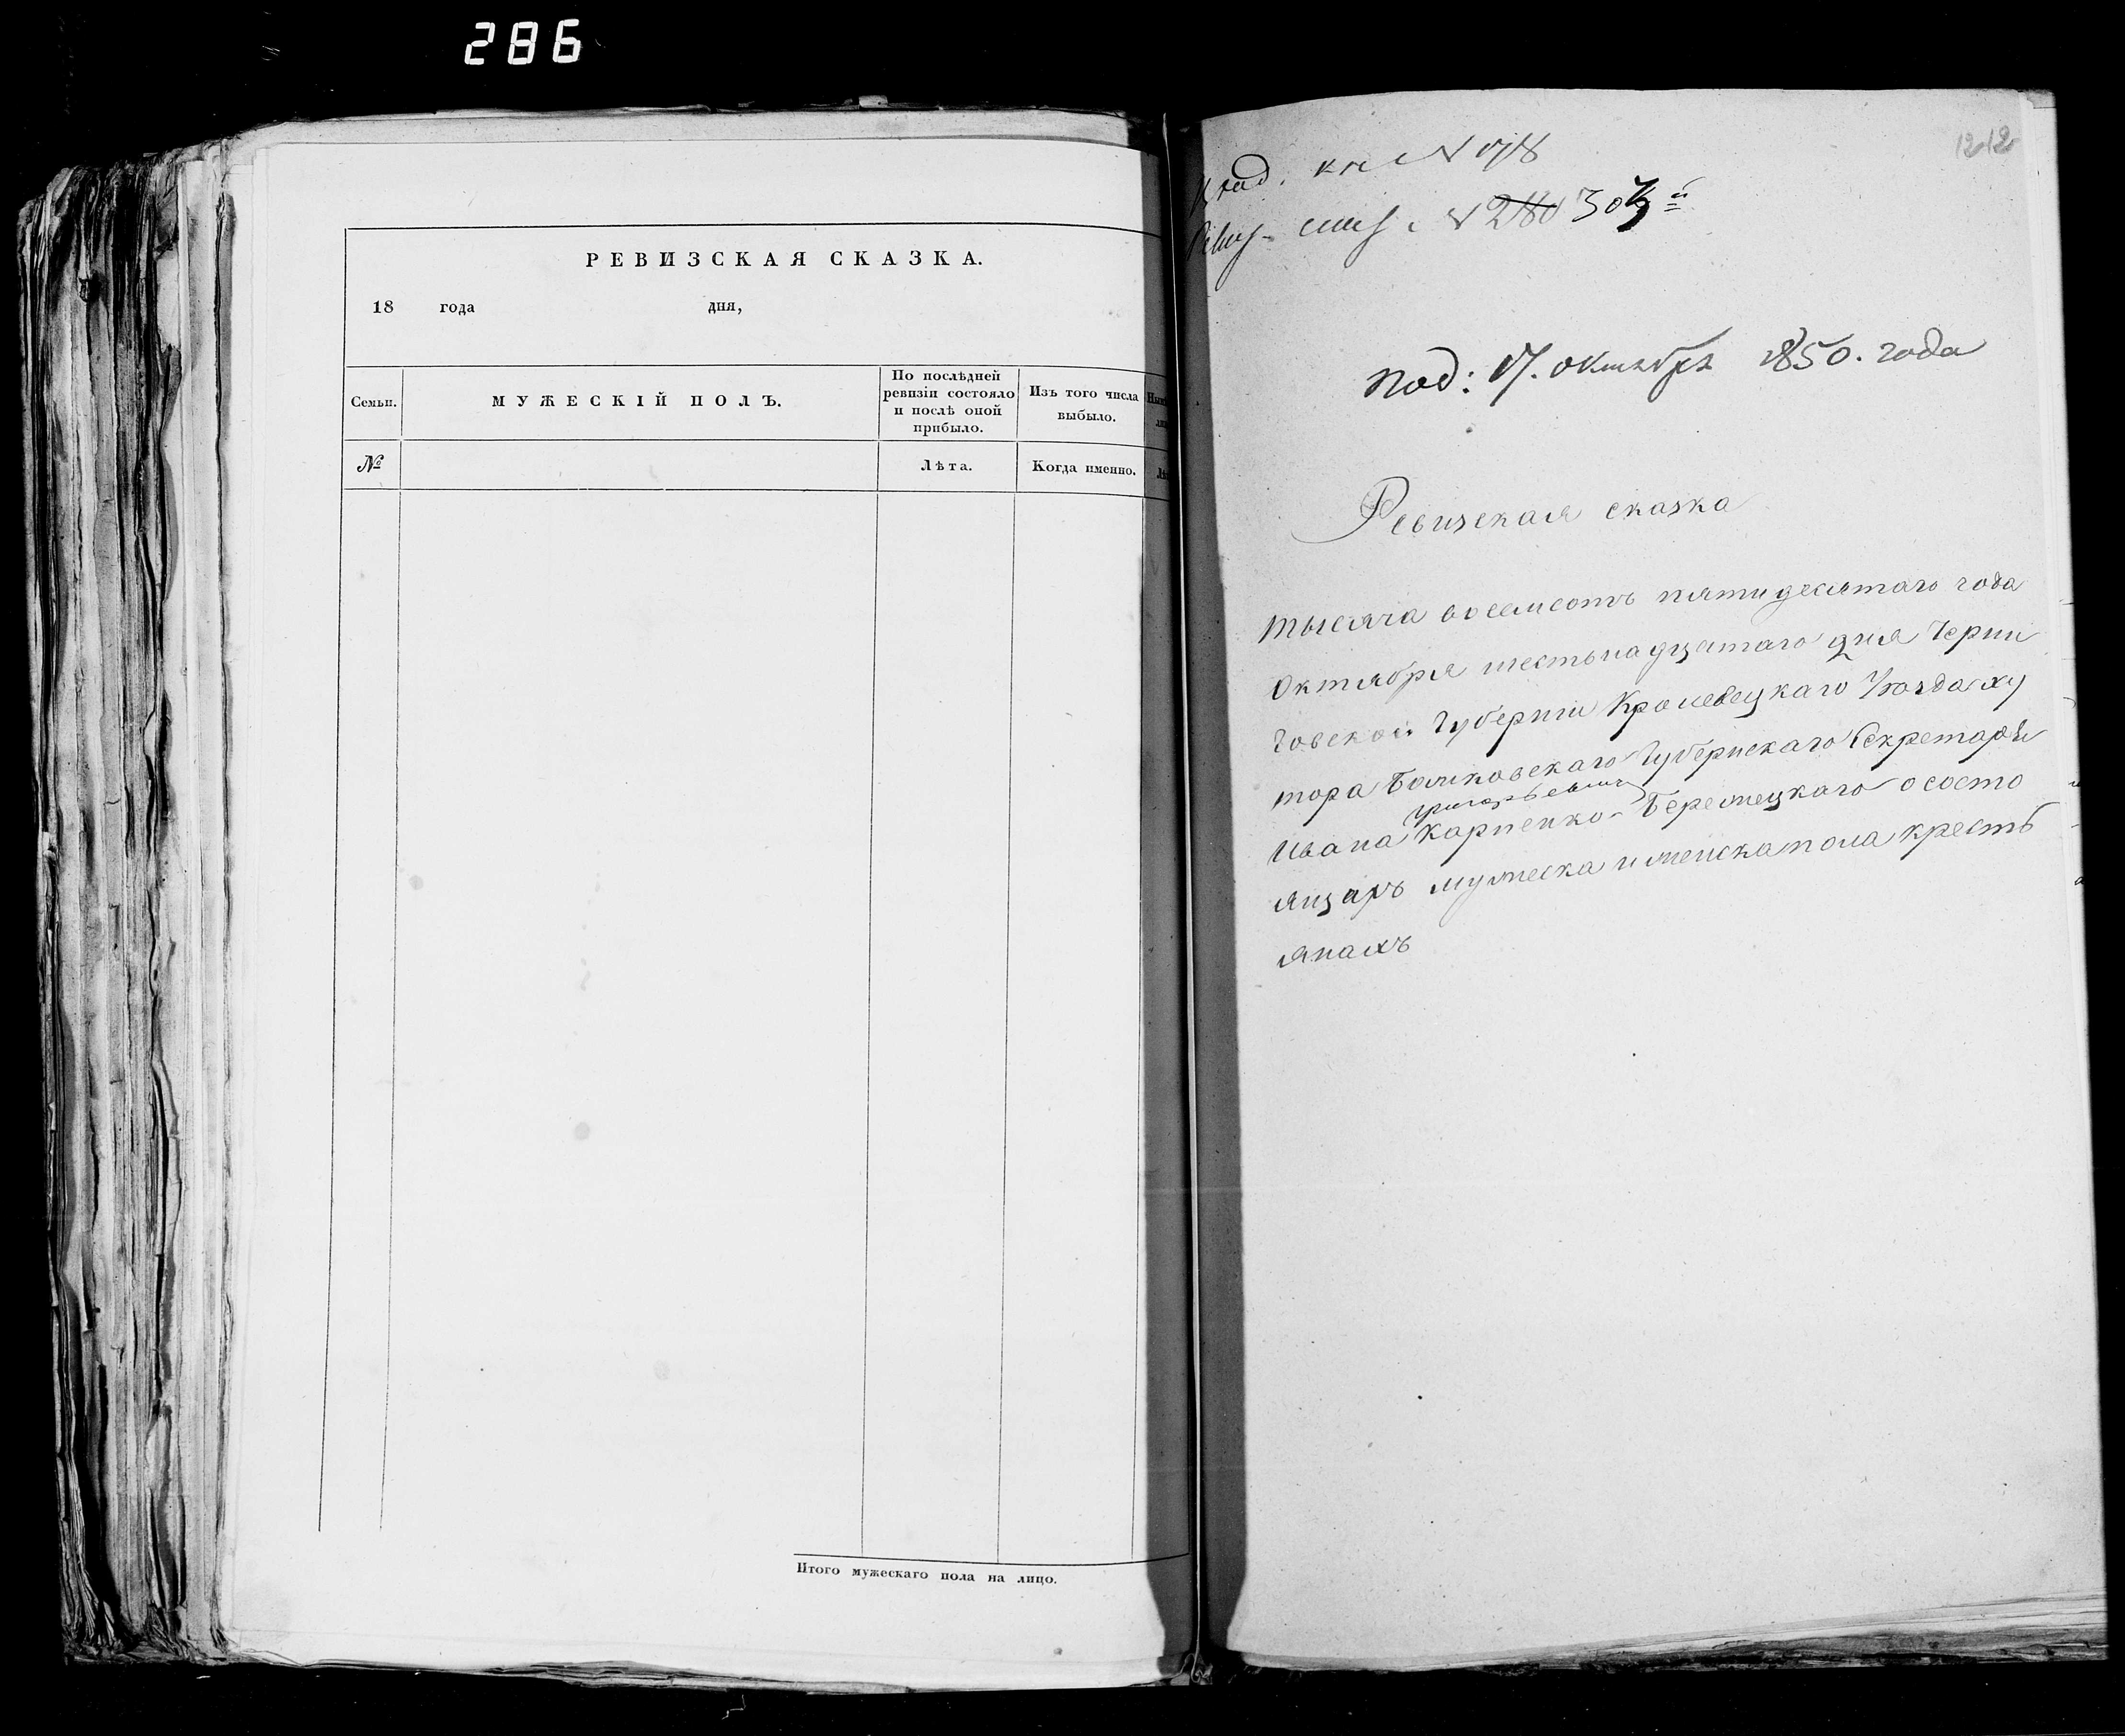 286
РЕВИЗСКАЯ СКАЗКА.
18 года дня,
Семьи. МУЖЕСКІЙ ПОЛЪ. По послѣдней ревизіи состояло и послѣ оной прибыло. Изъ того числа выбыло.
№ Лѣта. Когда именно.
Итого мужескаго пола на лицо.
1212
кн № 178
№ 280 303й
Под: 17. октября 1850. года
Ревизская сказка
тысяча восемсотъ пятидесятаго года
Октября шестьнадцатаго дня Черни
говской Губерніи Кролевецкаго Уѣзда ху
тора Губернскаго Секретаря
Ивана Григорьевича Карпенко-
о состо
ящихъ мужеска и женска пола кресть
янахъ